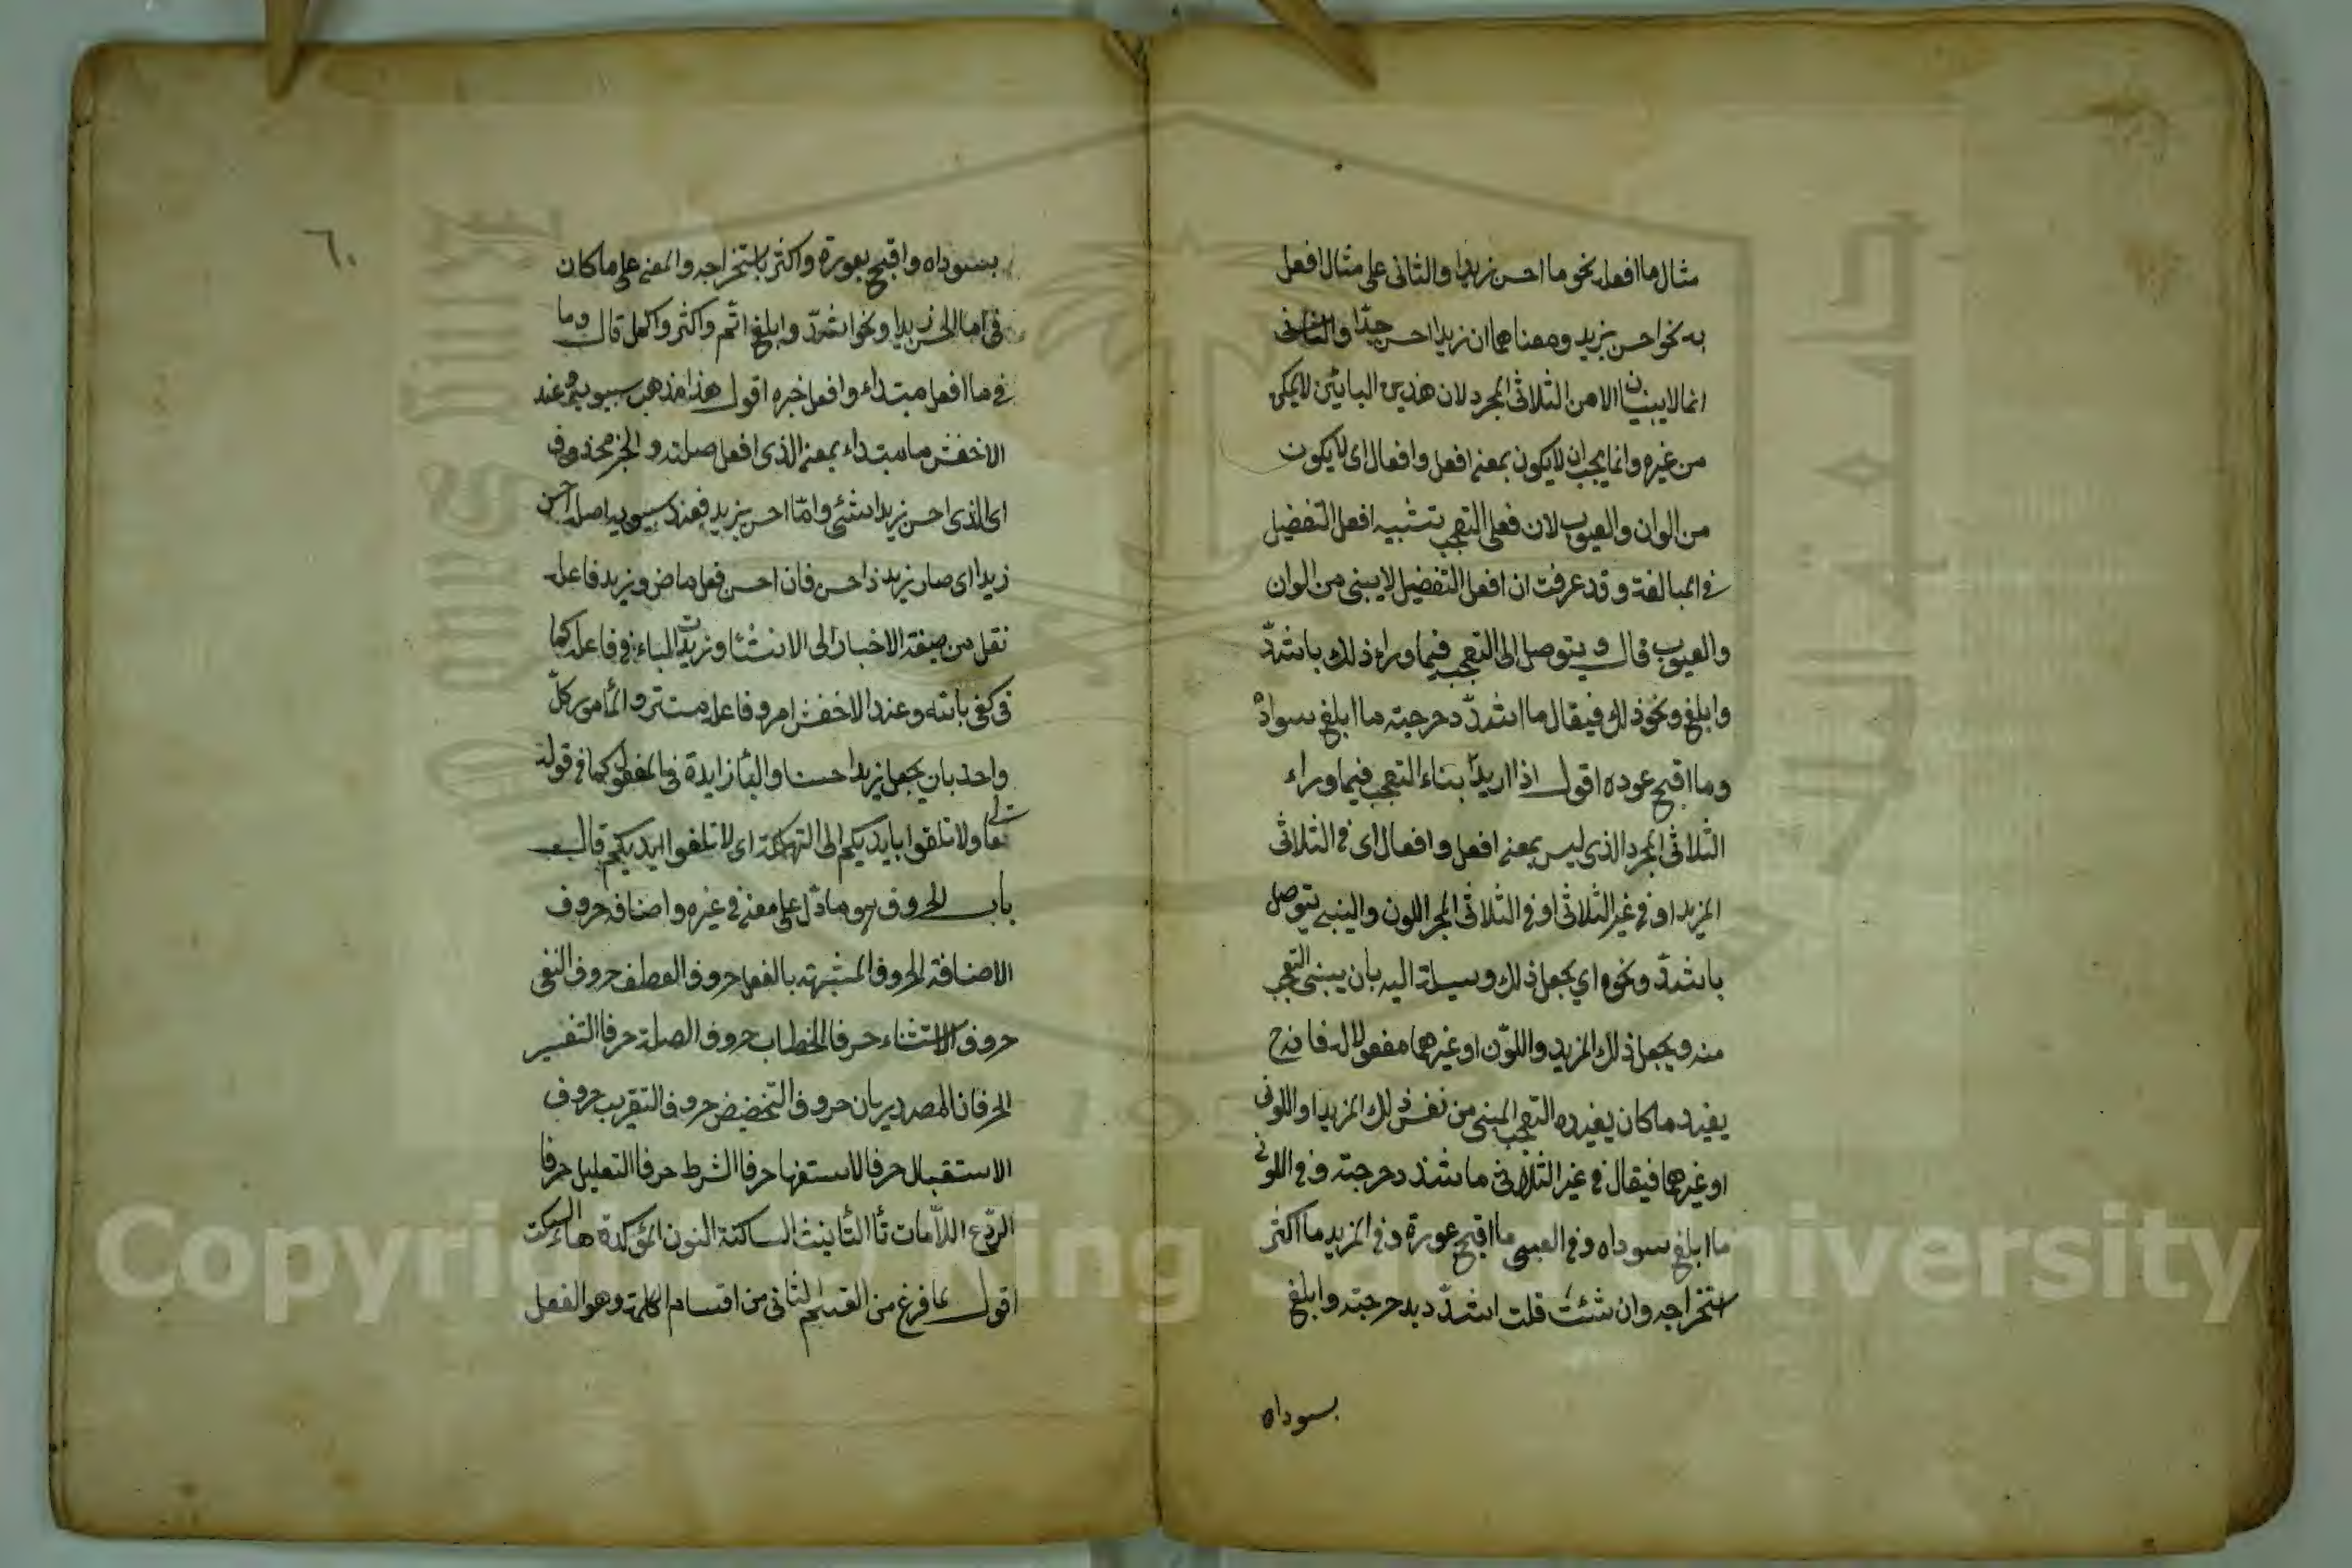 مثال ما افعله نحو ما احسن زيدا والثانى على مثال افعل
به نحو احسن بزيد ومعناهما ان زيدا احسن جدّا والثانى
انما لا يبنيان الا من الثلاثى المجرد لان هذين البابين لا يمكن
من غيره وانما يجب ان لا يكون بمعنى افعل وافعال اى لا يكون
من الوان والعيوب لان فعلى التعجب تشبيه افعل التفضيل
فى المبالغة وقد عرفت ان افعل التفضيل لا يبنى من الوان
والعيوب قال ويتوصل الى التعجب فيما وراء ذلك باشدّ
وابلغ ونحو ذلك فيقال ما اشدّ دحرجته ما ابلغ سواده
وما اقبح عوده اقول اذا اريد بناء التعجب فيما وراء
الثلاثى المجرد الذى ليس بمعنى افعل وافعال اى فى الثلاثى
المزيد او فى غير الثلاثى او فى الثلاثى المجر اللون والينبى يتوصل
باشدّ ونحوه اي يجعل ذلك وسيلة اليه بان يبنى التعجب
منه ويجعل ذلك المزيد واللوّن او غيرهما مفعولا له فاذح
يفيد ما كان يفيده التعجب المبنى من نفس ذلك المزيد او اللونى
او غيرهما فيقال فى غير الثلاثى ما شد دحرجته وفى اللونى
ما ابلغ سوداه وفى العيبى ما اقبح عورة وفى المزيد ما اكثر
ستخراجه وان شئت قلت اشدّد بدحرجته وابلغ
بسوداه
٦٠
بسوداه واقبح بعورة واكثر باستخراجه والمعنى على ما كان
فى ما احسن زيدا ونحو اشدّ وابلغ اتم واكثر واكمل قال وما
فى ما افعل مبتداء وافعل خبره اقول هذا مذهب سيبويه وعند
الاخفش ما مبتداء بمعنى الذى افعل صلته والخبر محذوف
اى الذى احسن زيدا شئ وامّا احسن بزيد فعند سيبويه اصله احسن
زيدا اى صار زيد ذا حسن فان احسن فعل ماض وزيد فاعله
نقل من صيغة الاخبار الى الانشاء وزيدت الباء فى فاعله كما
فى كفى بالله وعند الاخفش امر وفاعله مستتر والمأمور كلّ
واحد بان يجعل زيدا حسنا والباء زايدة فى المفعول كما فى قوله
تعالى ولا تلقوا بايديكم الى التهلكة اى لا تلقوا ايديكم قال
باب الحروف هو ما دّل على معنى فى غيره واصنافه حروف
الاضافة الحروف المشبهة بالفعل حروف العطف حروف النفى
حروف الاستثناء حرفا الخطاب حروف الصلة حرفا التفسير
الحرفان المصدريان حروف التخضيض حروف التقريب حروف
الاستقبال حرفا الاستفهام حرفا الشرط حرفا التعليل حرفا
الردّع اللاّمات تأ التأنيث الساكنة النون المؤكدة هاء السكت
اقول لما فرغ من القسم الثانى من اقسام الكلمة وهو الفعل